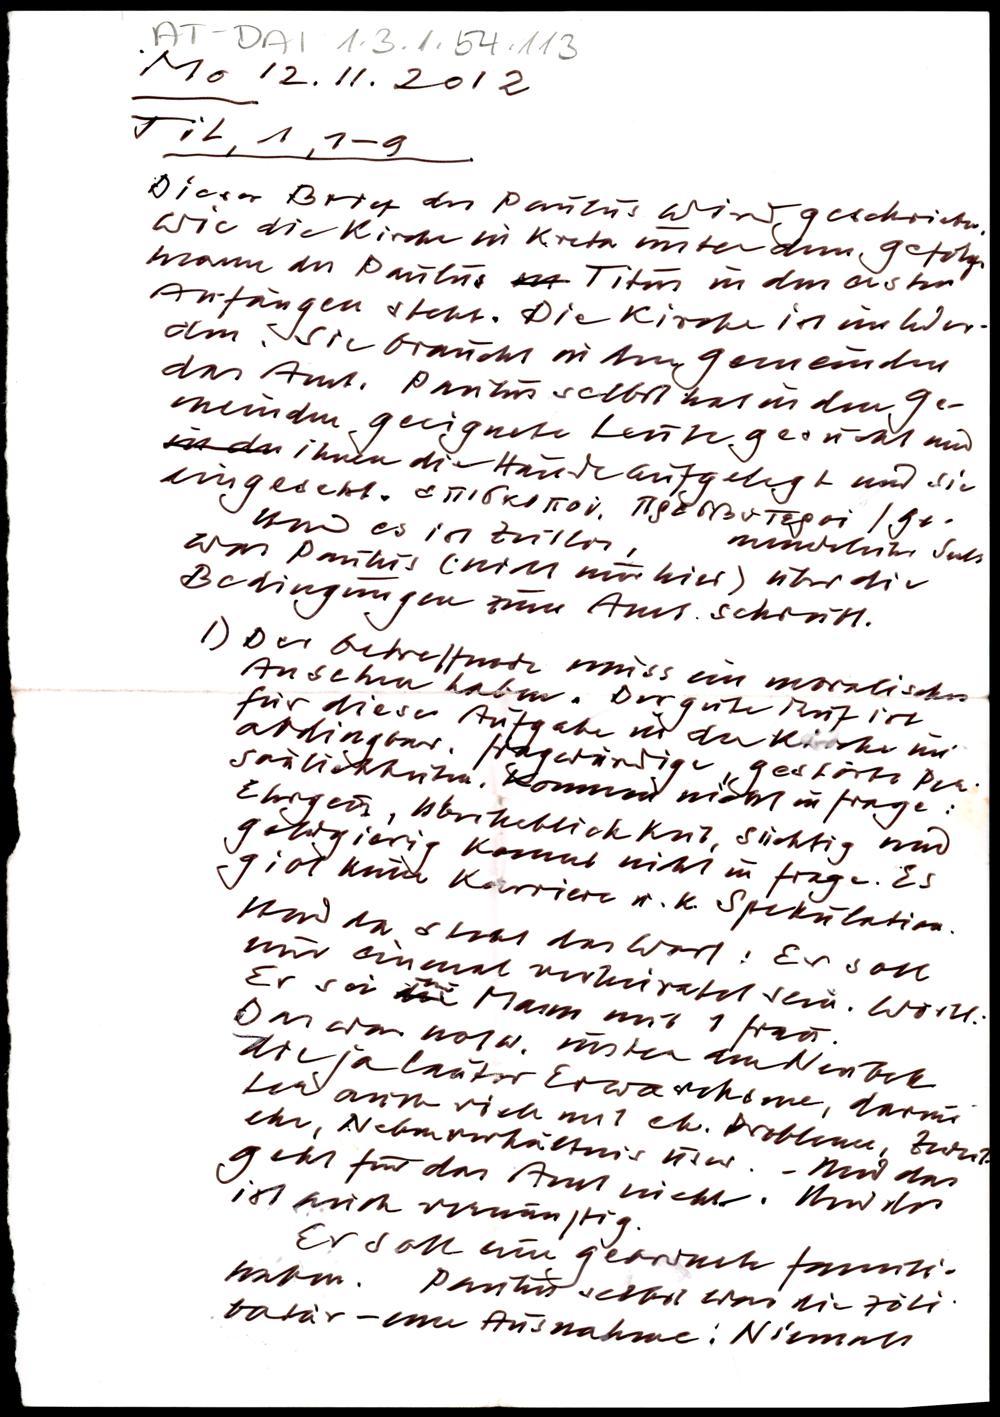 AT-DAI 1.3.1.54.113
Mo 12.11.2012
Tit, 1, 1-9
Dieser Brief des Paulus wird geschrieben,
wie die Kirche in Kreta unter dem Gefolgs
mann des Paulus Titus in den ersten
Anfängen steht. Die Kirche ist im Wer-
den. Sie braucht in den Gemeinden
das Amt. Paulus selbst hat in den Ge-
meinden geeignete Leute gesucht und
in den ihnen die Hände aufgelegt und sie
eingesetzt. επισκοποι, πρεσβυτεροι / ge-
und es ist zeitlos,
was Paulus (nicht nur hier) über die
Bedingungen zum Amt schreibt.
1) Der Betreffende muss ein moralisches
Ansehen haben. Der gute Ruf ist
für diese Aufgabe in der Kirche un
abdingbar. Fragwürdige, gestörte Per-
sönlichkeiten kommen nicht in Frage:
Ehrgeiz, Überheblichkeit, süchtig und
geldgierig kommt nicht in Frage. Es
gibt keine Karriere u. k. Spekulation.
Und da steht das Wort: Er soll
nur einmal verheiratet sein. Wörtl.:
Er sei Mann mit 1 Frau.
Das war notw. unter den Neubek
die ja lauter Erwachsene, darun
ter auch viele mit eh. Probleme, Zweit
ehe, Nebenverhältnis usw. - Und das
geht für das Amt nicht. Und das
ist auch vernünftig.
Er soll eine geordnete Familie
haben. Paulus selbst war die zöli
batär - eine Ausnahme: Niemals